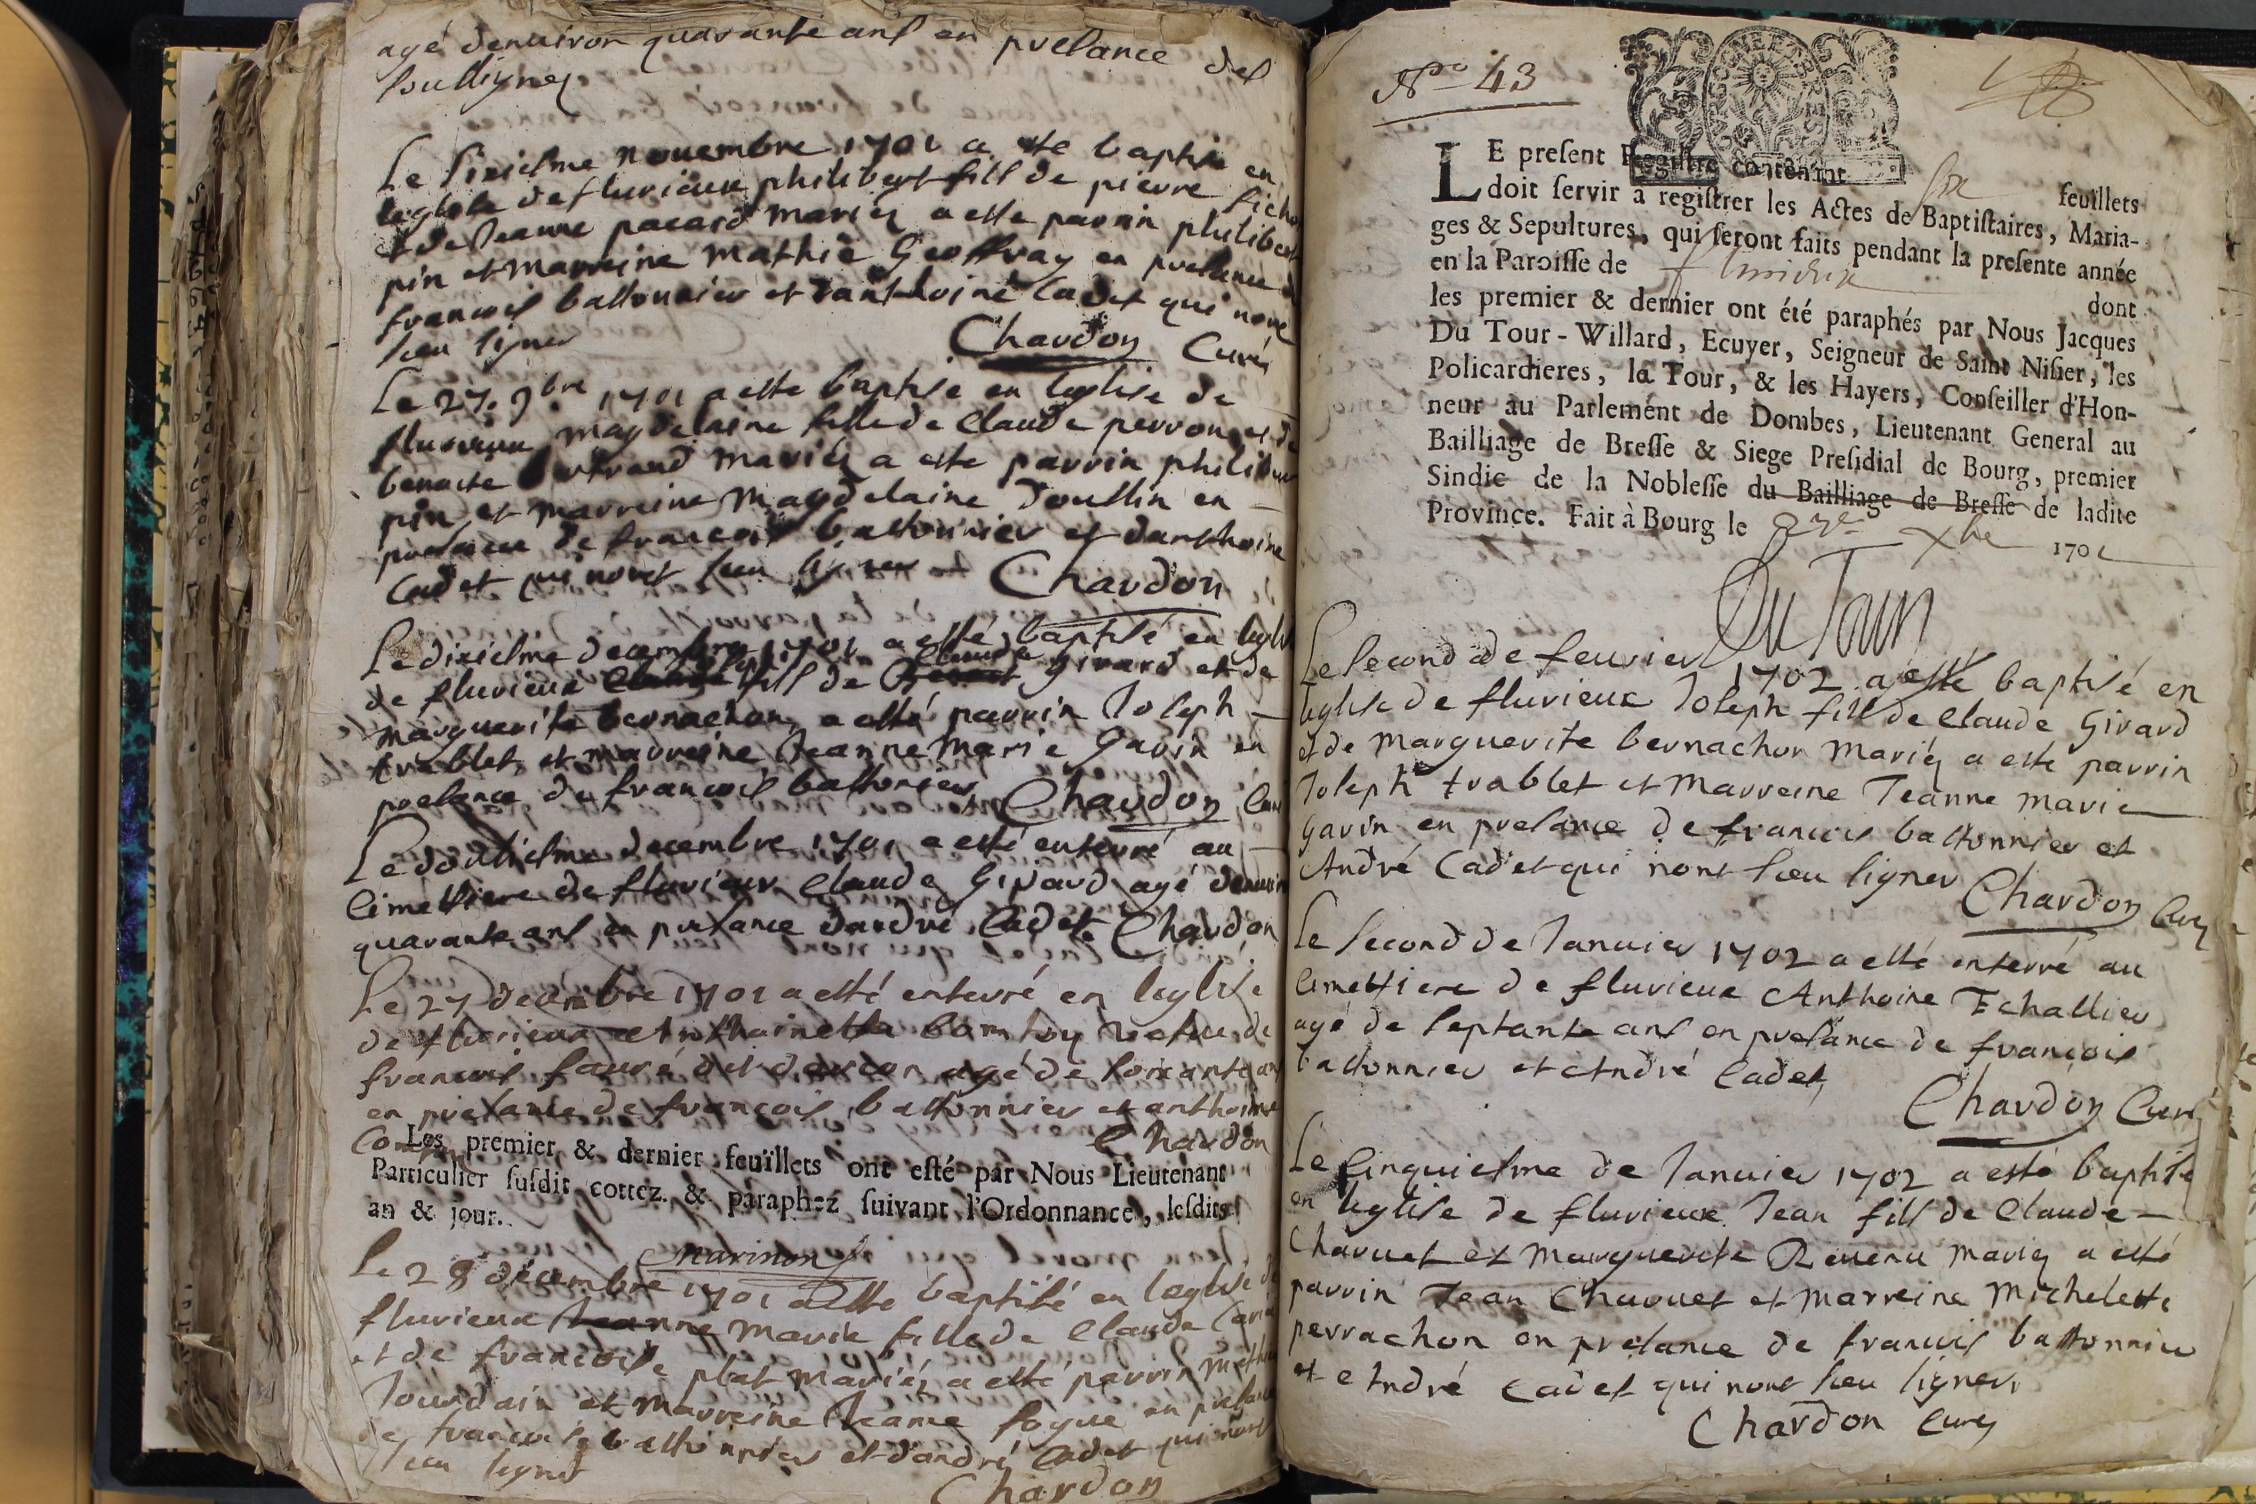 agé denuiron quarante ans en presance des
soussignez
Le sixiesme nouembre 1701 a este baptise en
leglise de flurieux philibert fils de pierre
et de Jeanne pacard mariez a esté parrin philibert
pin et marreine mathie Geoffray en presance
francois bastonnier et danthoine Cadet qui nont
sceu signer Chardon Curé
Le 27. 9bre 1701 a esté baptise en leglise de
flurieux magdelaine fille de Claude perron et de
benoite mariez a este parrin philibert
pin et marreine magdelaine doussin en
presance de francois bastonnier et danthoine
Cadet qui nont sceu signer Chardon
Le dixiesme decembre 1701 a esté baptisé en leglise
de flurieux fils de Claude Girard et de
marguerite bernachon a esté parrin Joseph
trablet et marreine Jeanne marie Gavin en
presance de francois bastonnier Chardon Curé
Le douziesme decembre 1701 a esté enterré au
Cimettiere de flurieux Claude Girard agé denuiron
quarante ans en presance dandré Cadet Chardon
Le 27 decembre 1701 a esté enterré en leglise
de flurieux Anthoinette vefue de
francois fauré dit agé de soixante ans
en presance de francois bastonnier et anthoine
Chardon
Les premier & dernier feuïllets ont esté par Nous Lieutenant
Particulier susdit cottez & paraphez suivant l'Ordonnance, lesdits
an & jour.
Marinon
Le 28 decembre 1701 a esté baptisé en leglise de
flurieux Jeanne marie fille de Claude
et de francoise plat mariéz a esté parrin
Jourdain et marreine Jeanne foque en presance
de francois bastonnier et dandré Cadet qui nont
sceu signer
Chardon
No 43
LE present Registre contenant six feuïllets
doit servir à registrer les Actes de Baptistaires, Maria-
ges & Sepultures, qui seront faits pendant la presente année
en la Paroisse de flurieux dont
les premier & dernier ont été paraphés par Nous Jacques
Du Tour-Willard, Ecuyer, Seigneur de Saint Nisier, les
Policardieres, la Tour, & les Hayers, Conseiller d'Hon-
neur au Parlement de Dombes, Lieutenant General au
Bailliage de Bresse & Siege Presidial de Bourg, premier
Sindic de la Noblesse du Bailliage de Bresse de ladite
Province. Fait à Bourg le xbre 1701
Du Tour
Le second de feurier 1702 a esté baptisé en
leglise de flurieux Joseph fils de Claude Girard
et de marguerite bernachon mariéz a esté parrin
Joseph trablet et marreine Jeanne marie
Gavin en presance de francois bastonnier et
André Cadet qui nont sceu signer Chardon Curé
Le second de Januier 1702 a esté enterré au
Cimettiere de flurieux Anthoine Echallier
agé de septante ans en presance de francois
bastonnier et André Cadet
Chardon Curé
Le Cinquiesme de Januier 1702 a esté baptisé
en leglise de flurieux Jean fils de Claude
Charuet et marguerite Reuenu mariez a esté
parrin Jean Charuet et marreine michelette
perrachon en presance de francois bastonnier
et André Cadet qui nont sceu signer
Chardon Curé